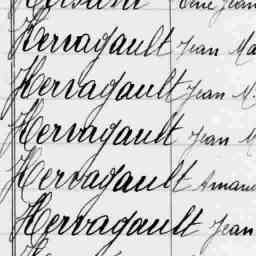 Hervagault Jean Ma
Hervagault Jean M
Hervagault Jean M
Hervagault Amand
Hervagault Jean